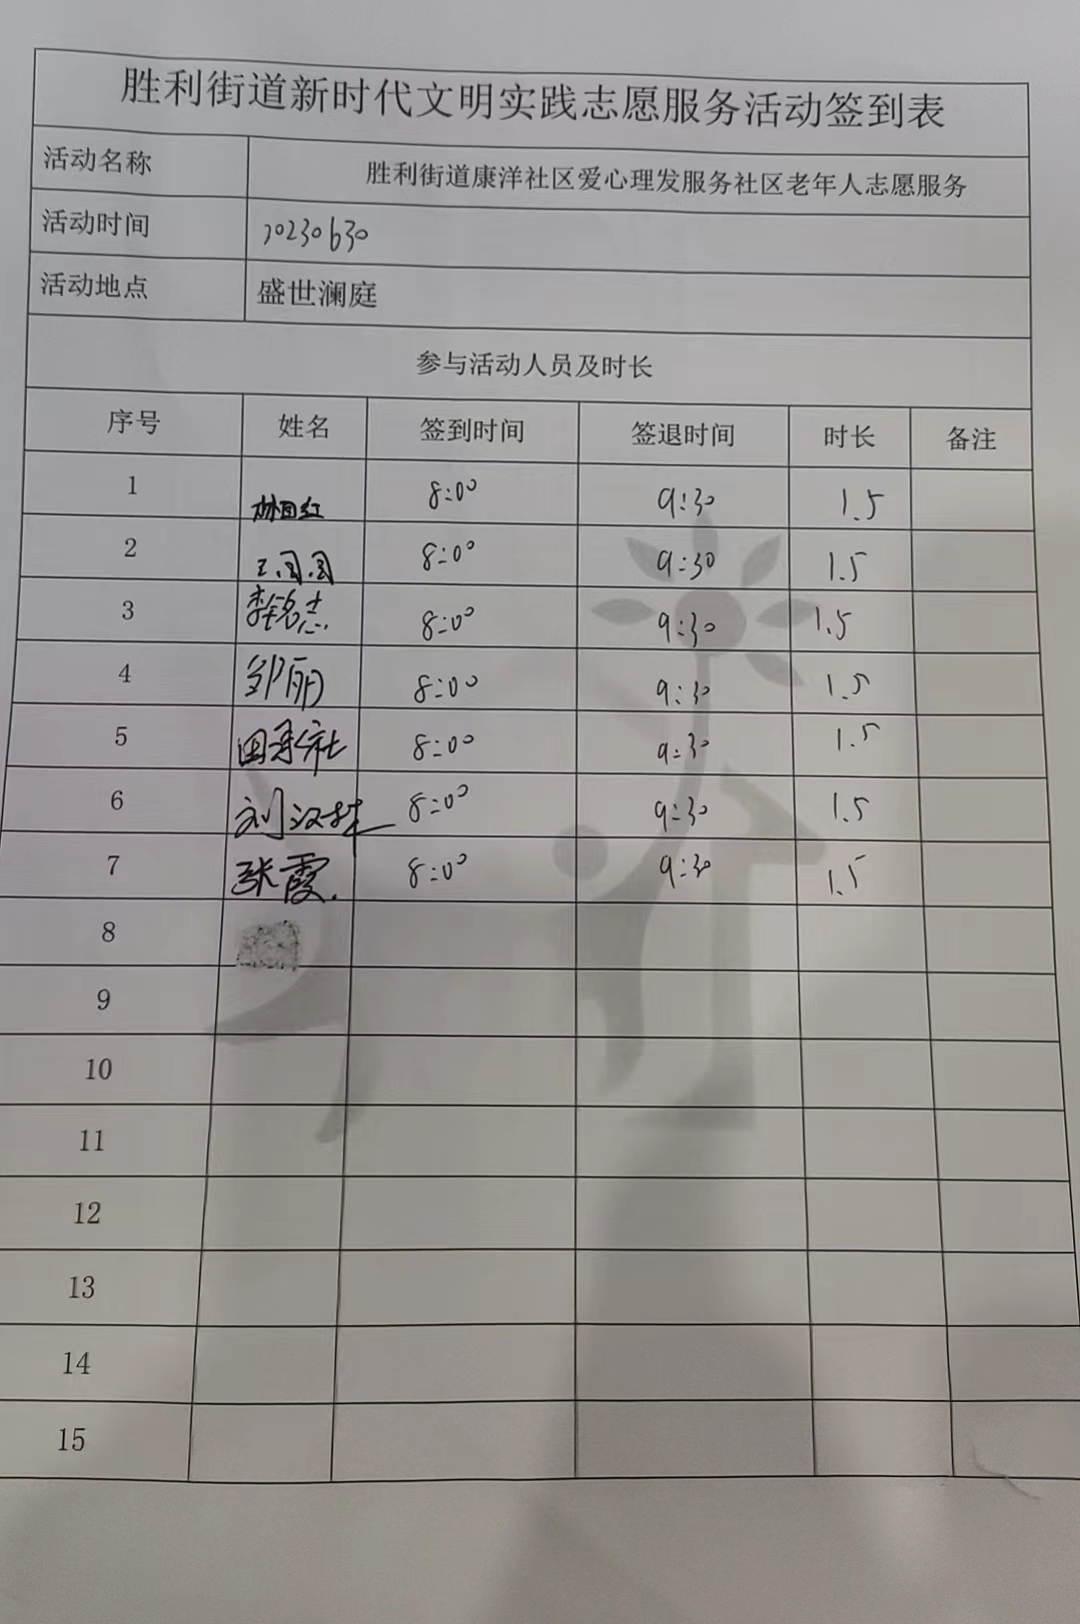 胜利街道新时代文明实践志愿服务活动签到表
活动名称 胜利街道康洋社区爱心理发服务社区老年人志愿服务
活动时间 20230630
活动地点 盛世澜庭
参与活动人员及时长
序号 姓名 签到时间 签退时间 时长 备注
1 8:00 9:30 1.5
2 王 8:00 9:30 1.5
3 李铭志 8:00 9:30 1.5
4 邹丽 8:00 9:30 1.5
5 田承社 8:00 9:30 1.5
6 刘汉 8:00 9:30 1.5
7 张霞. 8:00 9:30 1.5
8
9
10
11
12
13
14
15